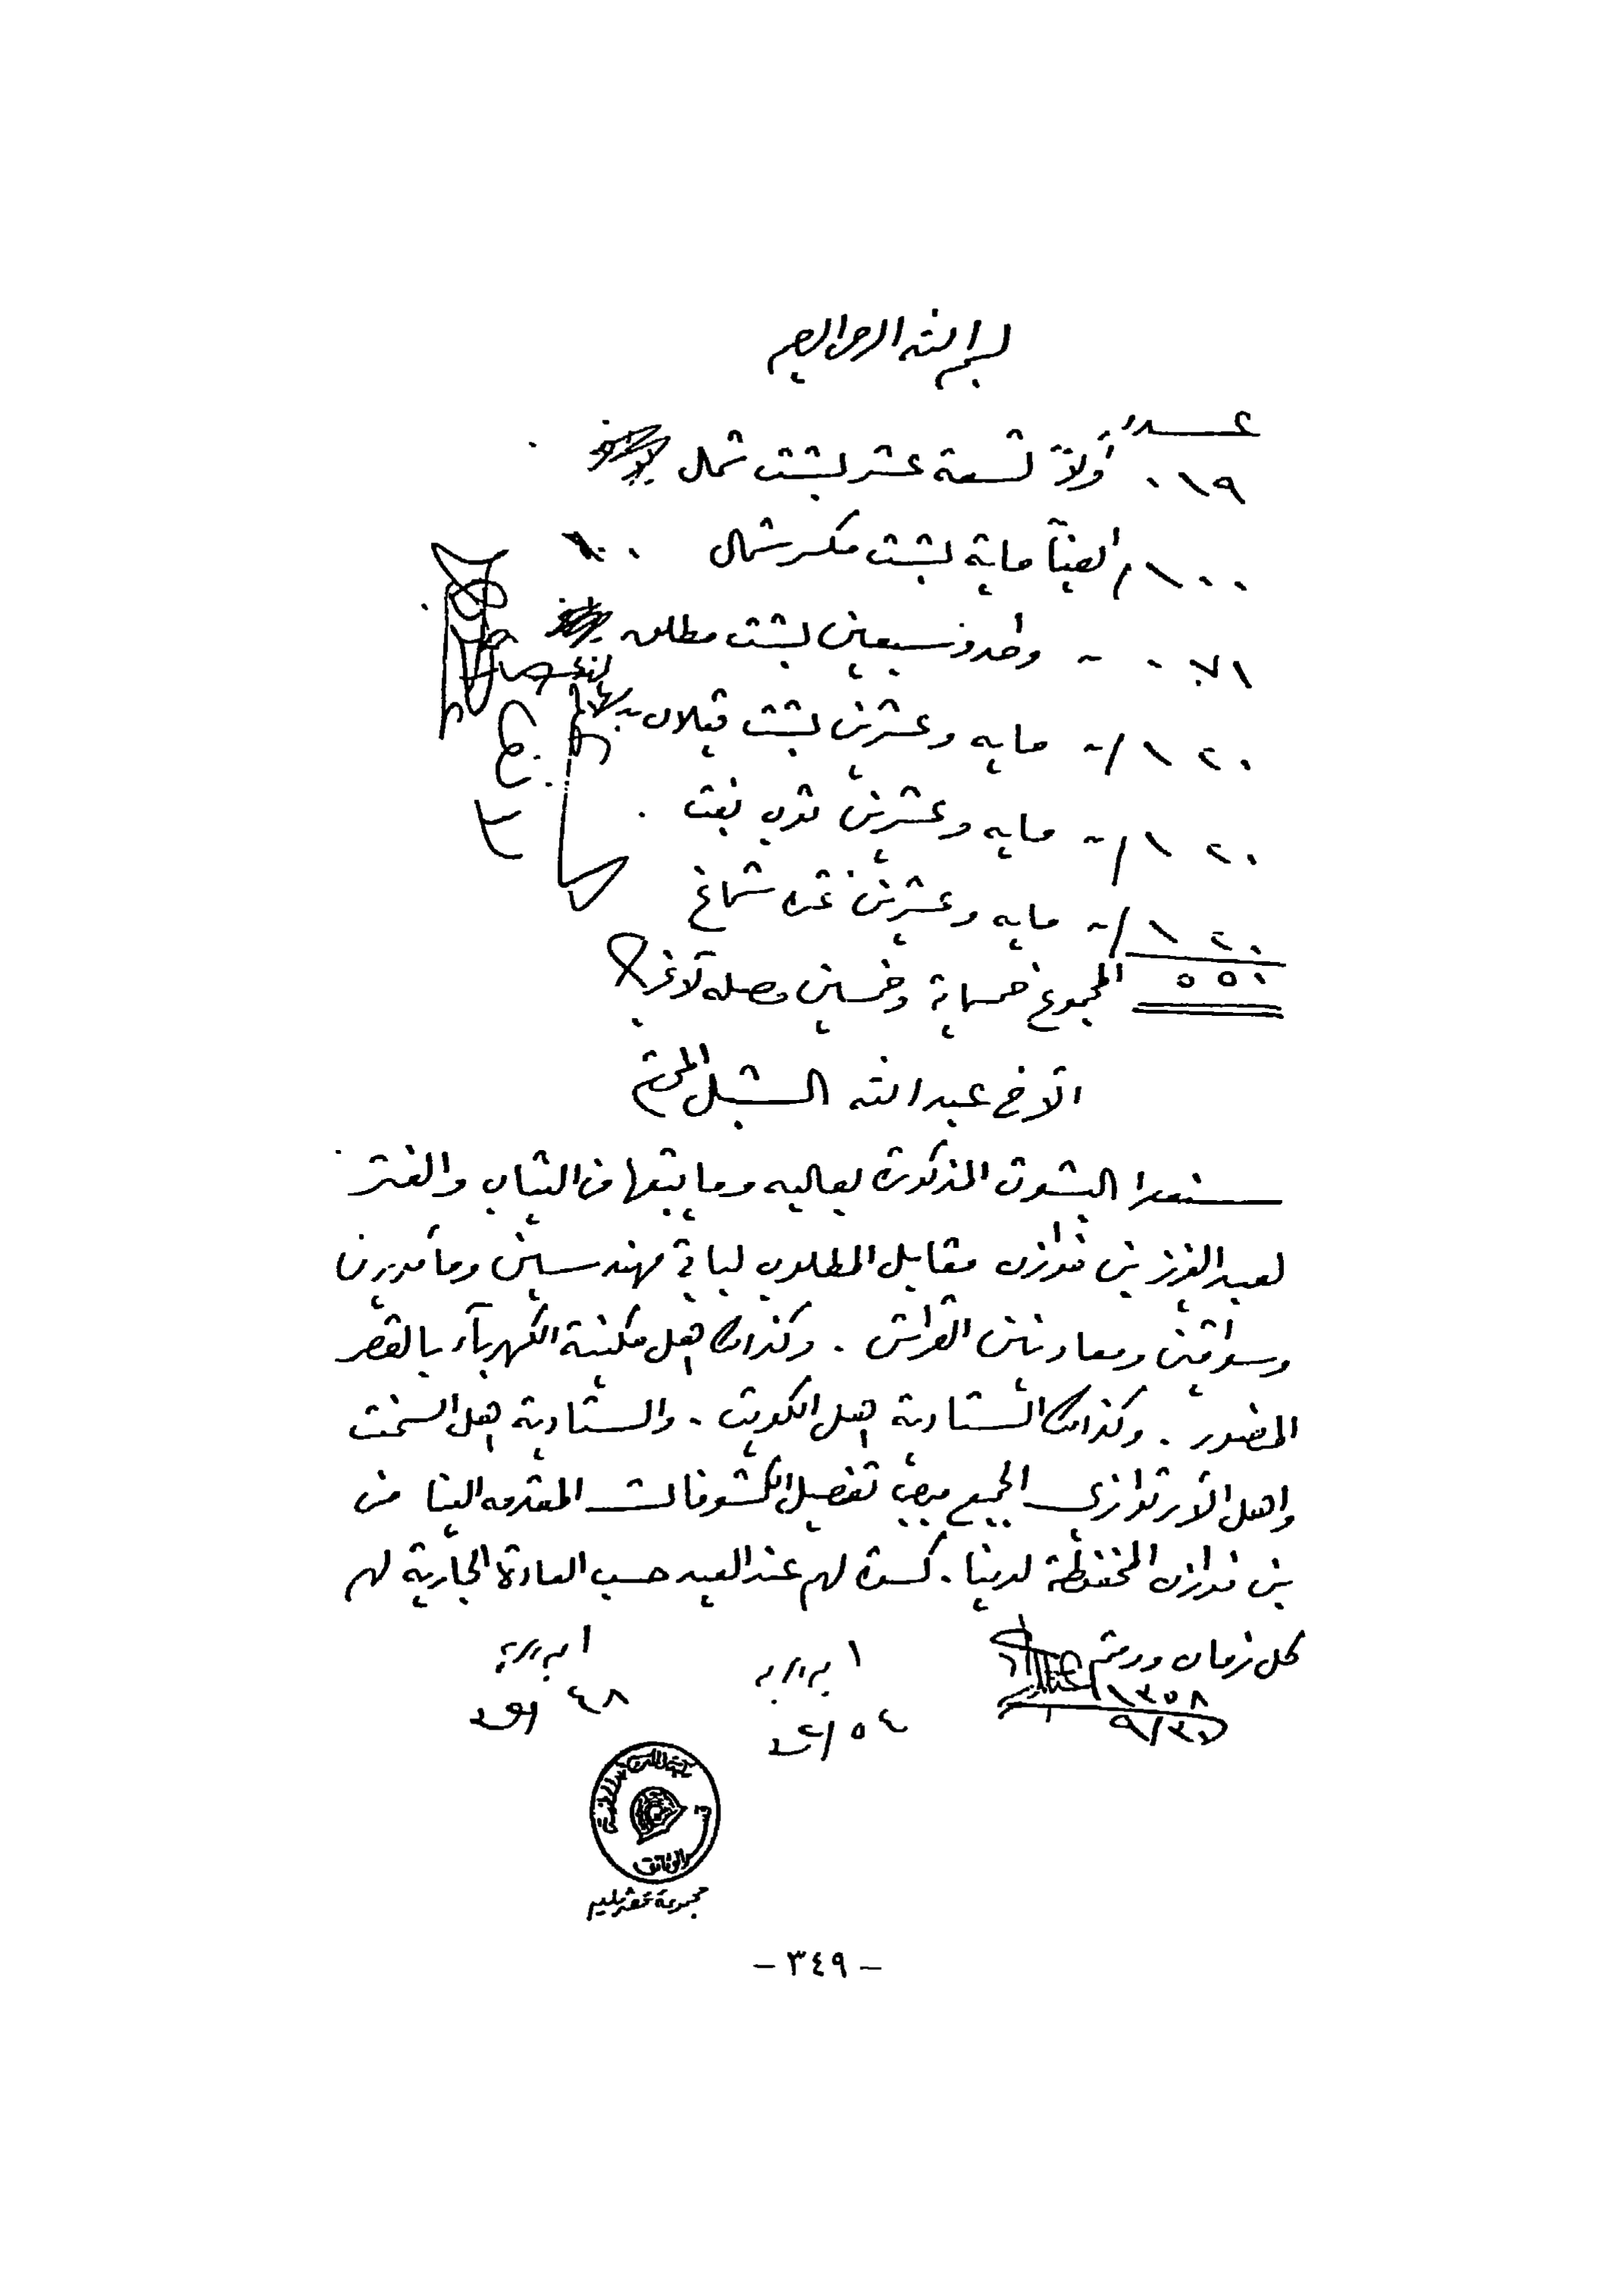 بسم الله الرحمن الرحيم
عدد
٠١٩ أولاً تسعة عشر بشت شمال
١٠٠ / ايضاً ماية بشت مكسر شمال
٠٧١ - واحد وسبعين بشت مطلق
١٢٠ /- مايه وعشرين بشت قيلان
١٢٠ /- مايه وعشرين ثوب بفت
١٢٠ /- مايه وعشرين غتره شماغ
٥٥٠ المجموع خمسماية وخمسين وصله لاغير
الأخ عبد الله الشبل المحترم
سنعوا البشوت المذكورة بعاليه وما يتبعها من الثياب والغتر
لعبد العزيز بن فوزان مقابل المطلوب لباقي مهندسين ومأمورين
وسواقين ومعاونين القراش . وكذلك اهل مكينة الكهرباء بالقصر
المنصور . وكذلك الستادية اهل الكويت . والستادية اهل السخت
واهل الأرتوازي الجميع مبين تفصيل الكشوفات المقدمه الينا من
بن فوزان المحتفظة لدينا . كسوة لهم عند العيد حسب العادة الجارية لهم
كل زمان ودمتم
١٣٥٨
٥٤
٤٨
والوثائق
مجموعة
- ٣٤٩ -